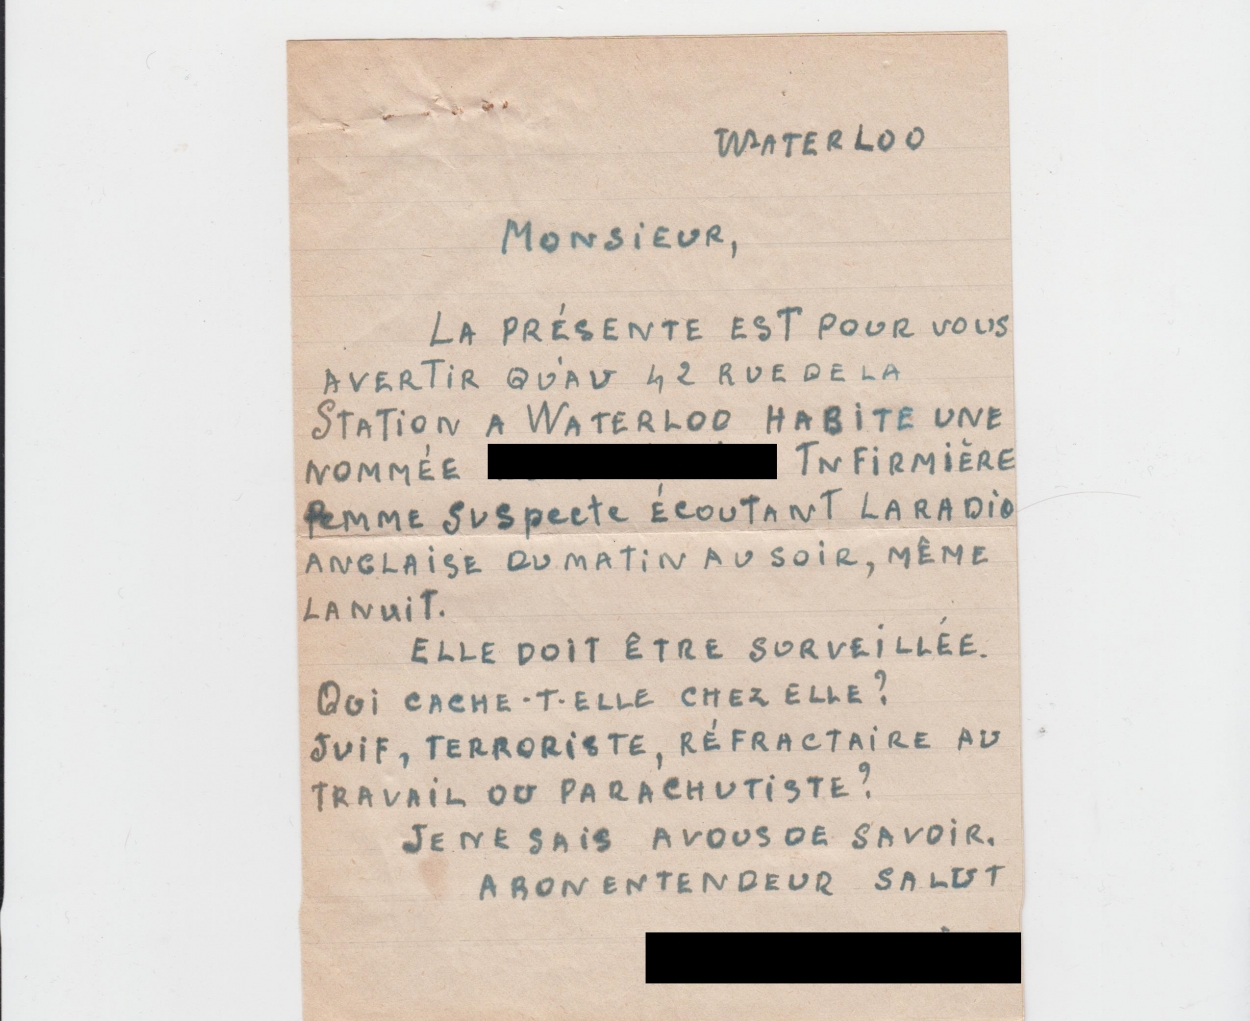 WATERLOO
MONSIEUR,
LA PRÉSENTE EST POUR VOUS
AVERTIR QU'AU 42 RUE DE LA
STATION A WATERLOO HABITE UNE
NOMMÉE INFIRMIÈRE
FEMME SUSPecte ÉCOUTANT LA RADIO
ANGLAISE DU MATIN AU SOIR, MÊME
LA NUIT.
ELLE DOIT ÊTRE SURVEILLÉE.
QUI CACHE-T-ELLE CHEZ ELLE?
JUIF, TERRORISTE, RÉFRACTAIRE AU
TRAVAIL OU PARACHUTISTE?
JE NE SAIS A VOUS DE SAVOIR.
A BON ENTENDEUR SALUT